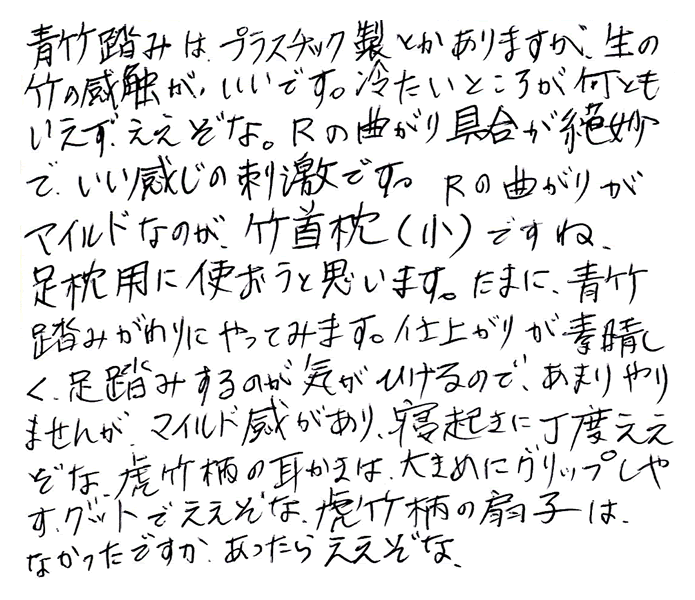 青竹踏みは、プラスチック製とかありますが、生の
竹の感触が、いいです。冷たいところが何とも
いえず、ええぞな。Rの曲がり具合が絶妙
で、いい感じの刺激です。Rの曲がりが
マイルドなのが、竹首枕(小)ですね、
足枕用に使おうと思います。たまに、青竹
踏みがわりにやってみます。仕上がりが素晴し
く、足踏みするのが気がひけるので、あまりやり
ませんが、マイルド感があり、寝起きに丁度ええ
ぞな、虎竹柄の耳かきは、大きめにグリップしや
す、グットでええぞな、虎竹柄の扇子は、
なかったですか、あったらええぞな、